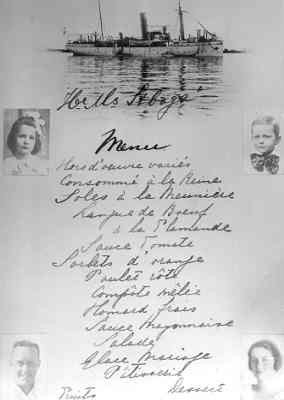 Hr Ms
Menu
Hors d'oeuvre variés
Consommé à la Reine
Soles à la Meunière
Langue de Boeuf
à la Flamande
Sauce Tomate
Sorbets d'orange
Poulet rôti
Compôte mêlée
Homard frais
Sauce Mayonnaise
Salade
Glace Mariage
Pâtisserie
Fruits Dessert